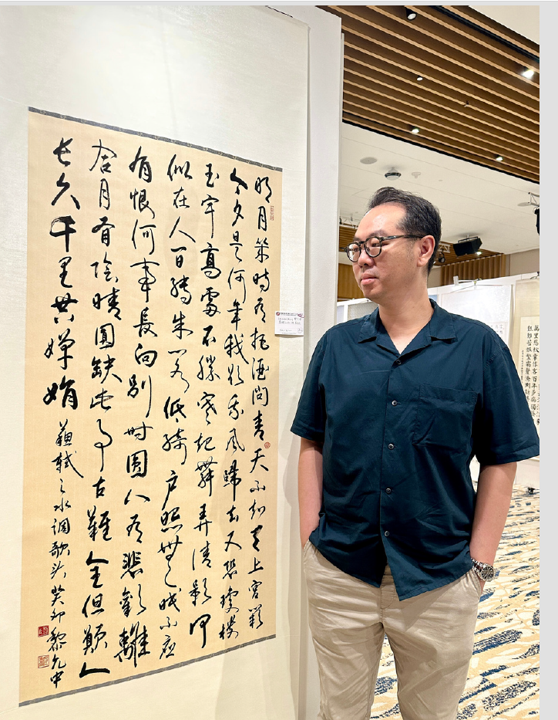 明月幾時有把酒問青天不知天上宮闕
今夕是何年我欲乘風歸去又恐瓊樓
玉宇高處不勝寒起舞弄清影何
似在人間轉朱閣低綺戶照無眠不應
有恨何事長向別時圓人有悲歡離
合月有陰晴圓缺此事古難全但願人
長久千里共嬋娟
蘇軾之水調歌頭 癸卯 黎允中